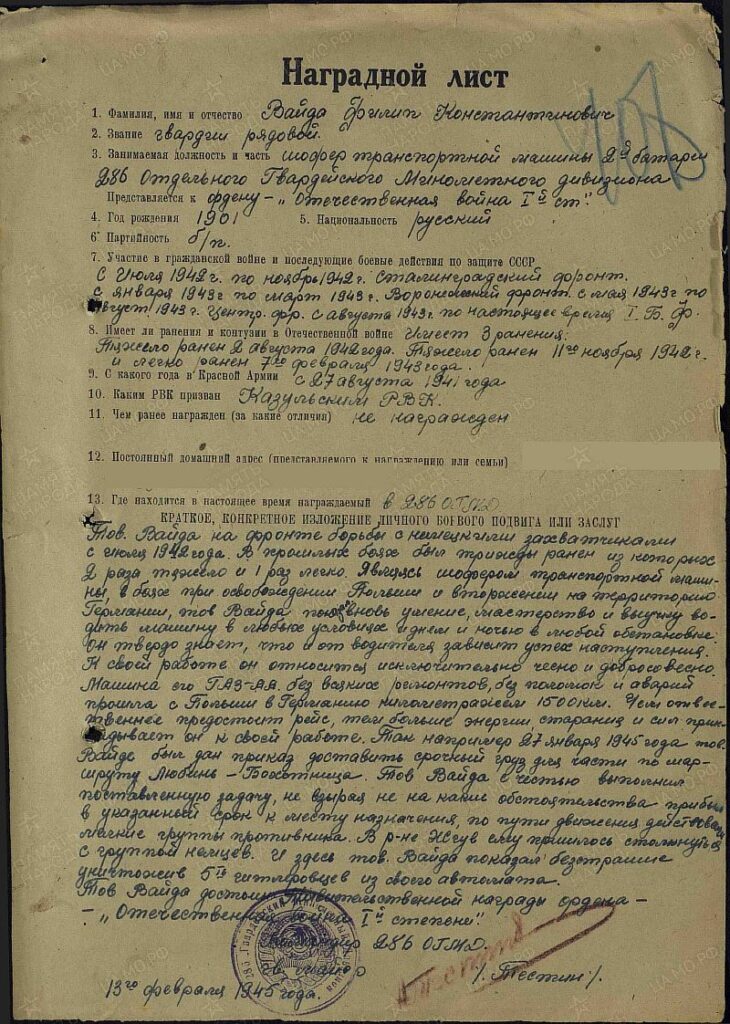 Наградной лист
1. Фамилия, имя и отчество Вайда Филип Константинович
2. Звание гвардии рядовой
3. Занимаемая должность и часть шофер транспортной машины 2й батареи
286 Отдельного Гвардейского Минометного дивизиона
Представляется к ордену – „Отечественная война Iй ст."
4. Год рождения 1901 5. Национальность русский
6. Партийность б/п.
7. Участие в гражданской войне и последующие боевые действия по защите СССР
с июля 1942г. по ноябрь 1942г. Сталинградский фронт.
с января 1943г по март 1943г. Воронежский фронт. с мая 1943г по
август 1943г. Центр. фр. с августа 1943г. по настоящее время I. Б. Ф.
8. Имеет ли ранения и контузии в Отечественной войне Имеет 3 ранения:
Тяжело ранен 2 августа 1942 года. Тяжело ранен 11го ноября 1942г.
и легко ранен 7го февраля 1943 года.
9. С какого года в Красной Армии с 27 августа 1941 года
10. Каким РВК призван Казульским РВК.
11. Чем ранее награжден (за какие отличия) не награжден
12. Постоянный домашний адрес (представляемого к награждению или семьи)
13. Где находится в настоящее время награждаемый в 286 ОГМД
КРАТКОЕ, КОНКРЕТНОЕ ИЗЛОЖЕНИЕ ЛИЧНОГО БОЕВОГО ПОДВИГА ИЛИ ЗАСЛУГ
Тов. Вайда на фронте борьбы с немецкими захватчиками
с июля 1942 года. В прошлых боях был трижды ранен из которых
2 раза тяжело и 1 раз легко. Являясь шофером транспортной маши-
ны, в боях при освобождении Польши и вторжении на территорию
Германии, тов Вайда вновь умение, мастерство и выучку во-
дить машину в любых условиях и днем и ночью в любой обстановке.
Он твердо знает, что и от водителя зависит успех наступления.
К своей работе он относится исключительно чесно и добросовесно.
Машина его ГАЗ-АА. без всяких ремонтов, без поломок и аварий
прошла с Польши в Германию километражем 1500 км. Чем ответ-
ственнее предостоит рейс, тем больше энергии старания и сил прик-
ладывает он к своей работе. Так например 27 января 1945 года тов.
Вайде был дан приказ доставить срочный груз для части по мар-
шруту Любинь – . Тов Вайда с честью выполнил
поставленную задачу, не взырая не на какие обстоятельства прибыл
в указанный срок к месту назначения, по пути движения действовали
мелкие группы противника. В р-не ему пришлось столкнуться
с группой немцев. И здесь тов. Вайда показал безстрашие
уничтожив 5ть гитлеровцев из своего автомата.
Тов Вайда достоин правительственной награды ордена –
– „Отечественная война Iй степени".
Командир 286 ОГМД.
майор /Тестин/.
13го февраля 1945 года.